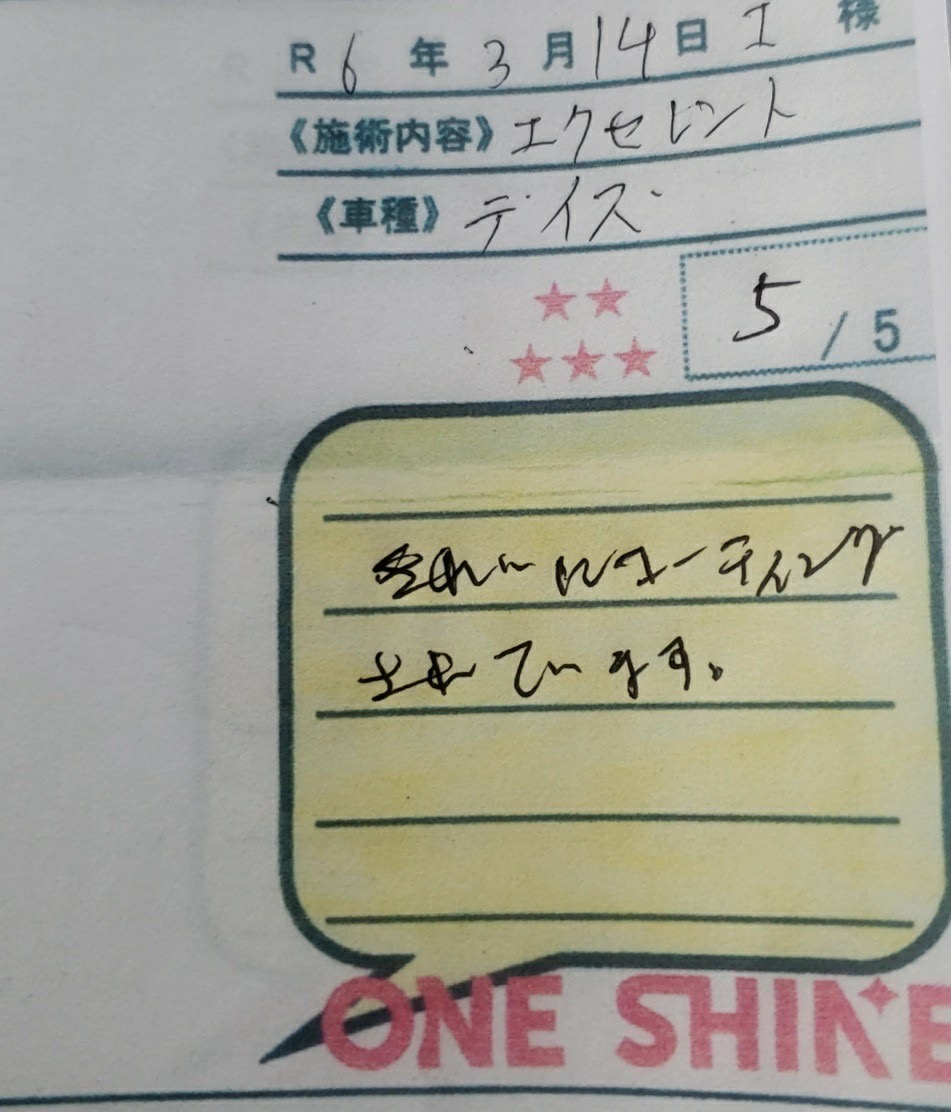 R 6 年 3 月 14 日 I 様
《施術内容》エクセレント
《車種》デイズ
5 / 5
きれいにコーティング
されています。
ONE SHINE